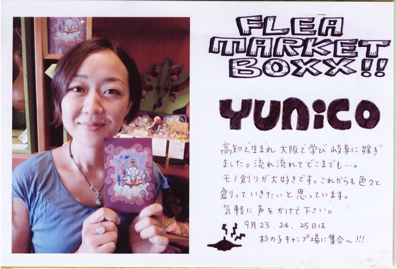 FLEA
MARKET
BOXX!!
YUNiCO
高知で生まれ 大阪で学び 岐阜に嫁ぎ
ました。流れ流れてどこまでも…。
モノ創りが大好きです。これからも色々と
創っていきたいと思っています。
気軽に声をかけて下さい。
9月23.24.25日は
杉の子キャンプ場に集合〜!!!